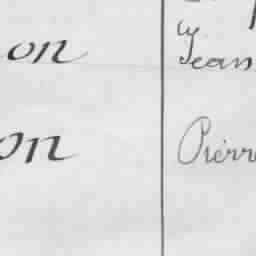 on Jean
on Pierre